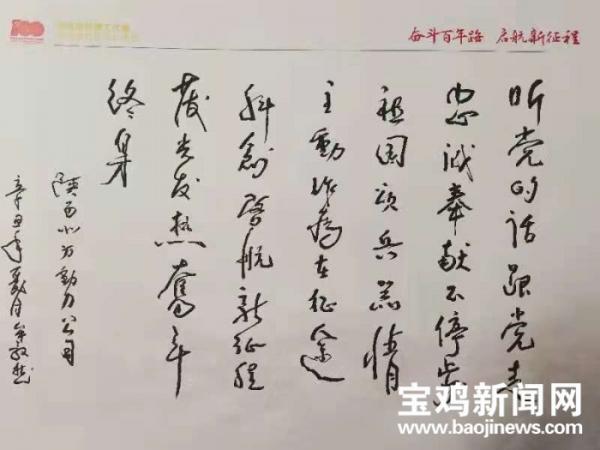 100
奋斗百年路 启航新征程
听党的话跟党走
忠诚奉献不停步
祖国兵器情
主動作為在征途
科創啓航新征程
發光发热奮斗
終身
陕西北方動力公司
辛丑年夏月
宝鸡新闻网
www.baojinews.com